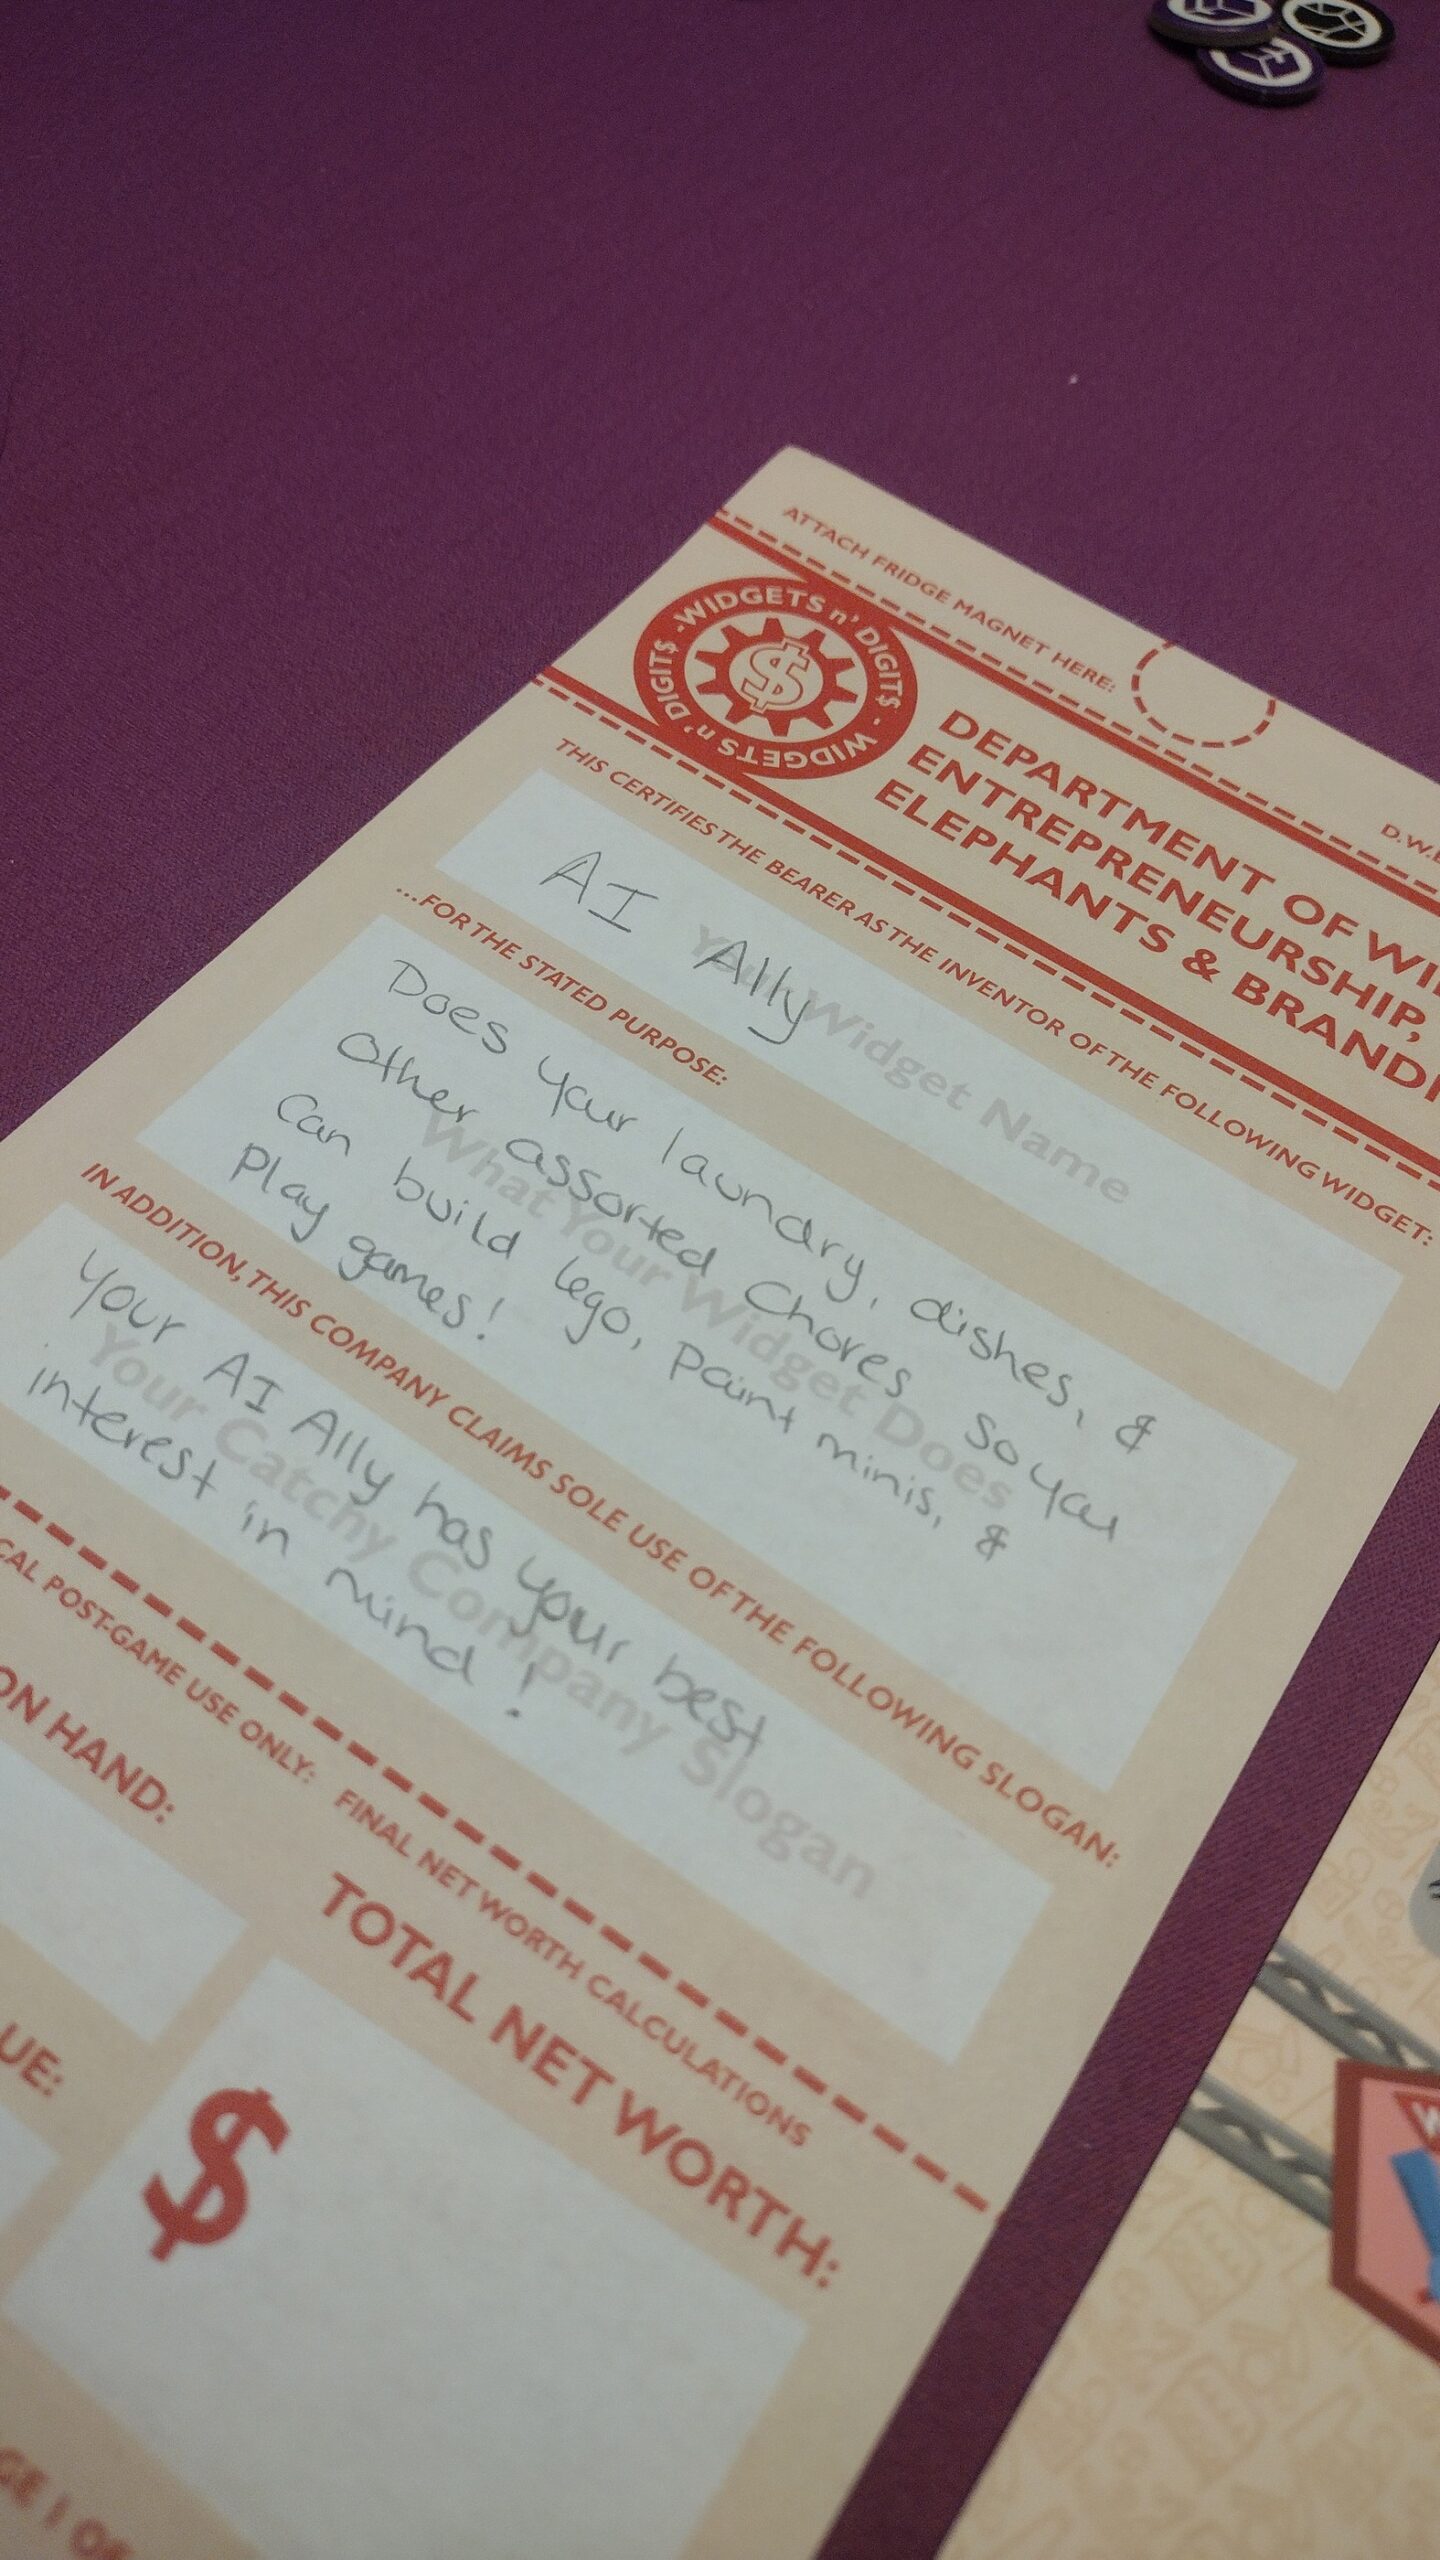 ATTACH FRIDGE MAGNET HERE:
WIDGETS n' DIGIT$ - WIDGETS n' DIGIT$ -
$
DEPARTMENT OF
ENTREPRENEURSHIP,
ELEPHANTS &
THIS CERTIFIES THE BEARER AS THE INVENTOR OF THE FOLLOWING WIDGET:
Your Widget Name
AI Ally
...FOR THE STATED PURPOSE:
What Your Widget Does
Does your laundry, dishes, &
other assorted chores so you
can build lego, paint minis, &
play games!
IN ADDITION, THIS COMPANY CLAIMS SOLE USE OF THE FOLLOWING SLOGAN:
Your Catchy Company Slogan
Your AI Ally has your best
interest in mind!
POST-GAME USE ONLY:
FINAL NET WORTH CALCULATIONS
ON HAND:
TOTAL NET WORTH:
$